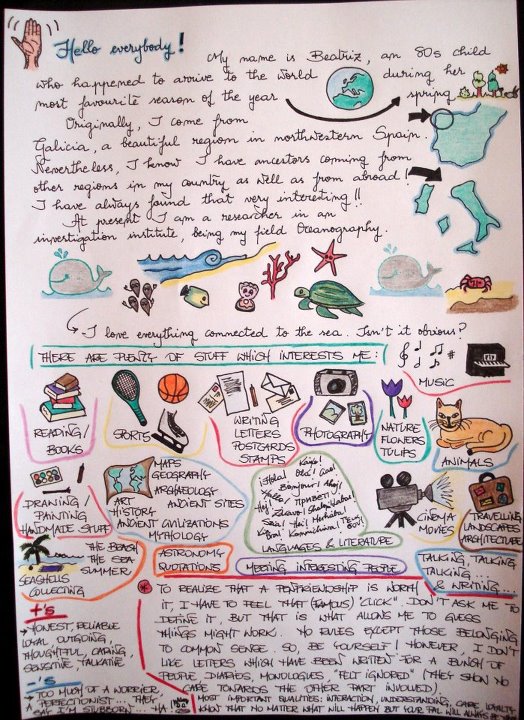 Hello everybody!
My name is Beatriz, an 80s child
who happened to arrive to the world during her
most favourite season of the year spring
Originally, I come from
Galicia, a beautiful region in northwestern Spain.
Nevertheless, I know I have ancestors coming from
other regions in my country as well as from abroad!
I have always found that very interesting!!
At present I am a researcher in an
investigation institute, being my field Oceanography.
I love everything connected to the sea. Isn't it obvious?
THERE ARE PLENTY OF STUFF WHICH INTERESTS ME:
MUSIC
READING/
BOOKS
SPORTS
WRITING
LETTERS
POSTCARDS
STAMPS
PHOTOGRAPHY
NATURE
FLOWERS
TULIPS
ANIMALS
DRAWING/
PAINTING
HANDMADE STUFF
MAPS
GEOGRAPHY
ARCHAEOLOGY
ART ANCIENT SITES
HISTORY
ANCIENT CIVILIZATIONS
MYTHOLOGY
¡Hola! Olá! Ciao!
Bonjour! Ahoj!
Hallo! ПРИВЕТ!
Hej!
LANGUAGES & LITERATURE
CINEMA
MOVIES
TRAVELLING
LANDSCAPES
ARCHITECTURE
THE BEACH
THE SEA
SUMMER
SEASHELLS
COLLECTING
ASTRONOMY
QUOTATIONS
MEETING INTERESTING PEOPLE
TALKING, TALKING,
TALKING...
& WRITING...
+'s
HONEST, RELIABLE
LOYAL, OUTGOING,
THOUGHTFUL, CARING,
SENSITIVE, TALKATIVE
-'s
TOO MUCH OF A WORRIER,
PERFECTIONIST... THEY
SAY I'M STUBBORN... HA
TO REALIZE THAT A PENFRIENDSHIP IS WORTH
IT, I HAVE TO FEEL THAT (FAMOUS) "CLICK". DON'T ASK ME TO
DEFINE IT, BUT THAT IS WHAT ALLOWS ME TO GUESS
THINGS MIGHT WORK. NO RULES EXCEPT THOSE BELONGING
TO COMMON SENSE. SO, BE YOURSELF! HOWEVER, I DON'T
LIKE LETTERS WHICH HAVE BEEN WRITTEN FOR A BUNCH OF
PEOPLE, DIARIES, MONOLOGUES, "FELT IGNORED" (THEY SHOW NO
CARE TOWARDS THE OTHER PART INVOLVED).
MOST IMPORTANT QUALITIES: INTERACTION, UNDERSTANDING, CARE, LOYALTY
KNOW THAT NO MATTER WHAT WILL HAPPEN BUT YOUR PAL WILL ALWAYS BE